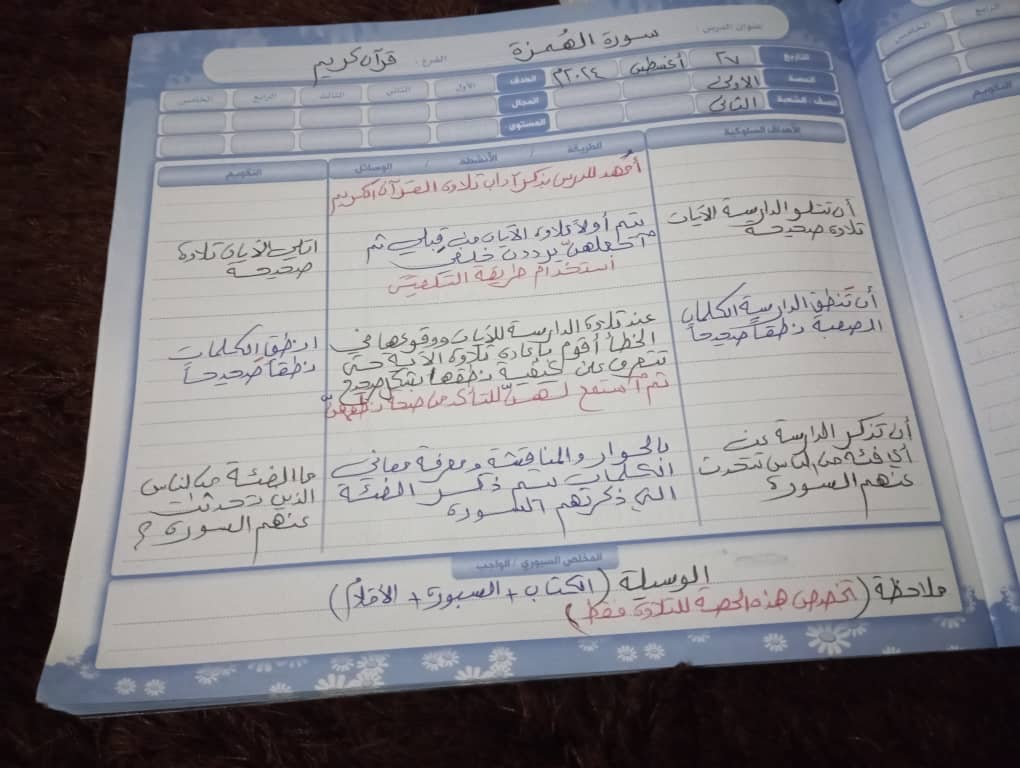 عنوان الدرس : سورة الهُمزة
الفرع : قرآن كريم
التاريخ ٢٧ أغسطس ٢٠٢٤م
الهدف الأول الثاني الثالث الرابع الخامس
الحصة الأولى
المجال
الصف - الشعبة الثاني
المستوى
الأهداف السلوكية
الطريقة / الأنشطة / الوسائل
التقويم
أمهد للدرس بذكر آداب تلاوة القرآن الكريم
أن تتلو الدارسة الآيات
تلاوة صحيحة
يتم أولاً تلاوة الآيات من قبلي ثم
أجعلهن يرددن خلفي
استخدام طريقة التلقين
اتلي الآيات تلاوة
صحيحة
أن تنطق الدارسة الكلمات
الصعبة نطقاً صحيحاً
عند تلاوة الدارسة للآيات ووقوعها في
الخطأ أقوم بإعادة تلاوة الآية حتى
تتعرف على كيفية نطقها بشكل صحيح
ثم أستمع لهن للتأكد من صحة نطقهن
انطقي الكلمات
نطقاً صحيحاً
أن تذكر الدارسة عن
أي فئة من الناس تتحدث
عنهم السورة
بالحوار والمناقشة ومعرفة معاني
الكلمات يتم ذكر الفئة
التي ذكرتهم السورة
ما الفئة من الناس
الذين تحدثت
عنهم السورة ؟
الملخص السبوري / الواجب
الوسيلة (الكتاب + السبورة + الأقلام)
ملاحظة (تخصص هذه الحصة للتلاوة فقط)
الرابع
الخامس
التقويم